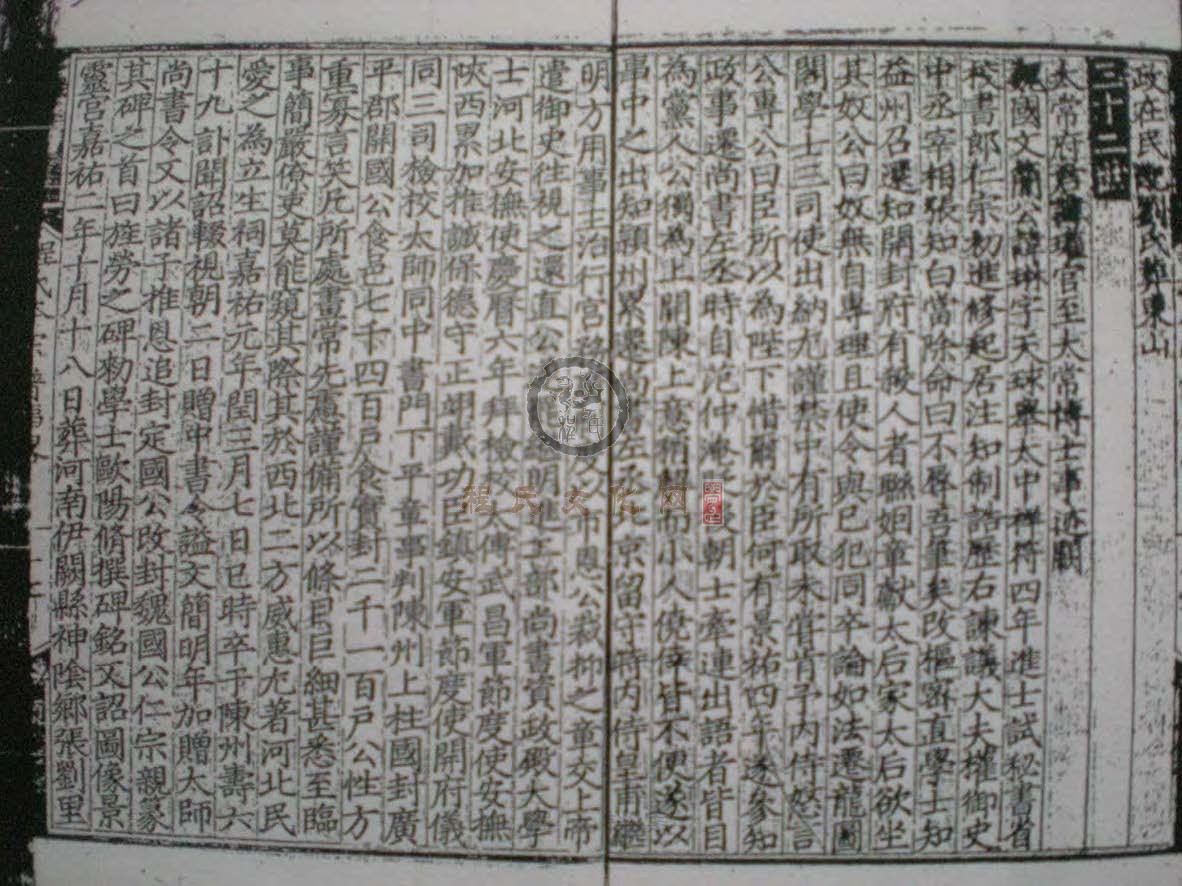 政在民 劉氏葬東山
三十二世
太常府君諱 官至太常博士事迹闕
國文簡公諱琳字天 大中祥符四年進士試秘書省
校書郎仁宗初進修起居注知制誥歷右諫議大夫權御史
中丞宰相張知白當除命曰不辱吾筆矣改樞密直學士知
益州召還知開封府有殺人者聯姻章獻太后家太后欲坐
其奴公曰奴無自專理且使令與已犯同卒論如法遷龍圖
閣學士三司使出納尤謹禁中有所取未嘗肯予內侍怒言
公專公曰臣所以為陛下惜爾於臣何有景祐四年遂參知
政事遷尚書左丞時自范仲淹 朝士牽連出語者皆目
為黨人公獨為上開陳上意稍 而小人僥倖皆不便遂以
事中之出知潁州累遷尚書左丞北京留守時內侍皇甫繼
明方用事主治行宮務 以市恩公裁抑之章交上帝
遣御史往視之還直公 繼明進工部尚書資政殿大學
士河北安撫使慶曆六年拜檢校太傅武昌軍節度使安撫
陝西累加推誠保德守正翊戴功臣鎮安軍節度使開府儀
同三司檢校太師同中書門下平章事判陳州上柱國封廣
平郡開國公食邑七千四百戶食實封二千一百戶公性方
重寡言笑凡所處畫常先慮謹備所以條目巨細甚悉至臨
事簡嚴僚吏莫能窺其際其於西北二方威惠尤著河北民
愛之為立生祠嘉祐元年閏三月七日巳時卒于陳州壽六
十九訃聞詔輟視朝二日贈中書令諡文簡明年加贈太師
尚書令又以諸子推恩追封定國公改封魏國公仁宗親篆
其碑之首曰旌勞之碑勑學士歐陽脩撰碑銘又詔圖像景
靈宮嘉祐二年十月十八日葬河南伊闕縣神陰鄉張劉里
程氏文化网